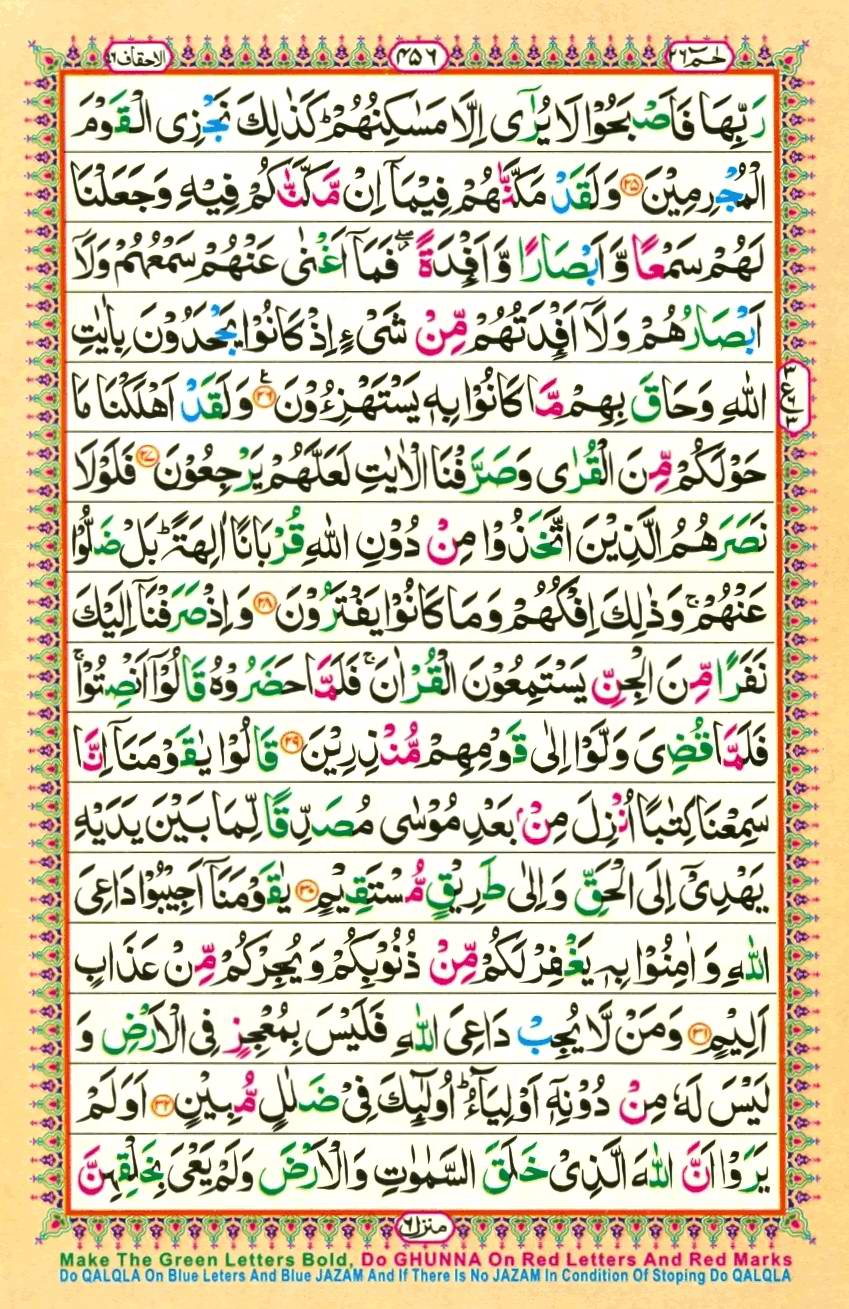 حٰمٓ ٢٦
٤٥٦
الاحقاف ٤٦
رَبِّهَا فَاَصْبَحُوْا لَا يُرٰٓى اِلَّا مَسٰكِنُهُمْ ؕ كَذٰلِكَ نَجْزِى الْقَوْمَ
الْمُجْرِمِيْنَ ۟۲۵ وَلَقَدْ مَكَّنّٰهُمْ فِيْمَاۤ اِنْ مَّكَّنّٰكُمْ فِيْهِ وَجَعَلْنَا
لَهُمْ سَمْعًا وَّ اَبْصَارًا وَّ اَفْـِٕدَةً ۖؗ فَمَاۤ اَغْنٰى عَنْهُمْ سَمْعُهُمْ وَلَاۤ
اَبْصَارُهُمْ وَلَاۤ اَفْـِٕدَتُهُمْ مِّنْ شَىْءٍ اِذْ كَانُوْا يَجْحَدُوْنَ بِاٰيٰتِ
اللّٰهِ وَحَاقَ بِهِمْ مَّا كَانُوْا بِهٖ يَسْتَهْزِءُوْنَ ۟۲۶ وَلَقَدْ اَهْلَكْنَا مَا
حَوْلَكُمْ مِّنَ الْقُرٰى وَصَرَّفْنَا الْاٰيٰتِ لَعَلَّهُمْ يَرْجِعُوْنَ ۟۲۷ فَلَوْلَا
نَصَرَهُمُ الَّذِيْنَ اتَّخَذُوْا مِنْ دُوْنِ اللّٰهِ قُرْبَانًا اٰلِهَةً ؕ بَلْ ضَلُّوْا
عَنْهُمْ ۚ وَذٰلِكَ اِفْكُهُمْ وَمَا كَانُوْا يَفْتَرُوْنَ ۟۲۸ وَاِذْ صَرَفْنَاۤ اِلَيْكَ
نَفَرًا مِّنَ الْجِنِّ يَسْتَمِعُوْنَ الْقُرْاٰنَ ۚ فَلَمَّا حَضَرُوْهُ قَالُوْۤا اَنْصِتُوْا ۚ
فَلَمَّا قُضِىَ وَلَّوْا اِلٰى قَوْمِهِمْ مُّنْذِرِيْنَ ۟۲۹ قَالُوْا يٰقَوْمَنَاۤ اِنَّا
سَمِعْنَا كِتٰبًا اُنْزِلَ مِنْۢ بَعْدِ مُوْسٰى مُصَدِّقًا لِّمَا بَيْنَ يَدَيْهِ
يَهْدِىْۤ اِلَى الْحَقِّ وَاِلٰى طَرِيْقٍ مُّسْتَقِيْمٍ ۟۳۰ يٰقَوْمَنَاۤ اَجِيْبُوْا دَاعِىَ
اللّٰهِ وَ اٰمِنُوْا بِهٖ يَغْفِرْ لَكُمْ مِّنْ ذُنُوْبِكُمْ وَيُجِرْكُمْ مِّنْ عَذَابٍ
اَلِيْمٍ ۟۳۱ وَمَنْ لَّا يُجِبْ دَاعِىَ اللّٰهِ فَلَيْسَ بِمُعْجِزٍ فِى الْاَرْضِ وَ
لَيْسَ لَهٗ مِنْ دُوْنِهٖۤ اَوْلِيَآءُ ؕ اُولٰٓئِكَ فِىْ ضَلٰلٍ مُّبِيْنٍ ۟۳۲ اَوَلَمْ
يَرَوْا اَنَّ اللّٰهَ الَّذِىْ خَلَقَ السَّمٰوٰتِ وَالْاَرْضَ وَلَمْ يَعْىَ بِخَلْقِهِنَّ
ع
منزل ٦
Make The Green Letters Bold, Do GHUNNA On Red Letters And Red Marks
Do QALQLA On Blue Leters And Blue JAZAM And If There Is No JAZAM In Condition Of Stoping Do QALQLA